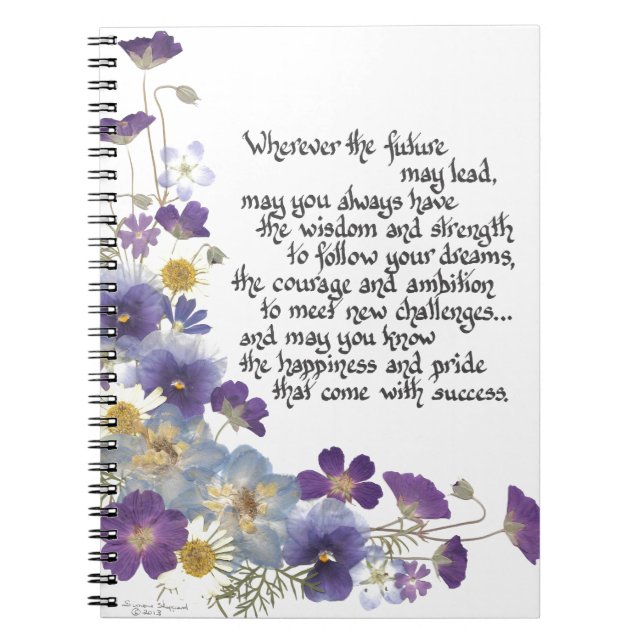 Wherever the future
may lead,
may you always have
the wisdom and strength
to follow your dreams,
the courage and ambition
to meet new challenges...
and may you know
the happiness and pride
that come with success.
© 2013